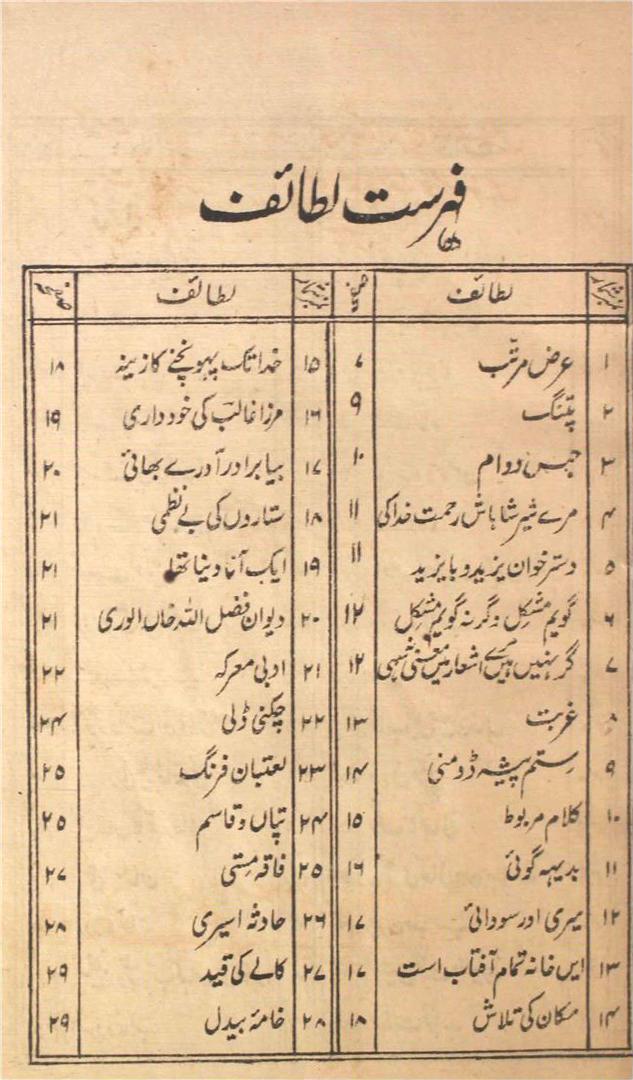 فہرست لطائف
نمبر شمار لطائف صفحہ
۱ عرض مرتب ۷
۲ پتنگ ۹
۳ حبس دوام ۱۰
۴ مرے شیر شاباش رحمت خدا کی ۱۱
۵ دسترخوان یزید و بایزید ۱۱
۶ گویم مشکل وگرنہ گویم مشکل ۱۲
۷ گر نہیں ہیں مرے اشعار میں معنی نہ سہی ۱۲
۸ غربت ۱۳
۹ ستم پیشہ ڈومنی ۱۴
۱۰ کلام مربوط ۱۵
۱۱ بدیہہ گوئی ۱۶
۱۲ میری اور سودائی ۱۷
۱۳ ایں خانہ تمام آفتاب است ۱۷
۱۴ مکان کی تلاش ۱۸
نمبر شمار لطائف صفحہ
۱۵ خدا تک پہونچنے کا زینہ ۱۸
۱۶ مرزا غالب کی خود داری ۱۹
۱۷ بیا برادر آؤ رے بھائی ۲۰
۱۸ ستاروں کی بے نظمی ۲۱
۱۹ ایک آنا دینا تھا ۲۱
۲۰ دیوان فضل اللہ خاں الوری ۲۱
۲۱ ادبی معرکہ ۲۲
۲۲ چکنی ڈلی ۲۴
۲۳ لعتبان فرنگ ۲۵
۲۴ تپاں و قاسم ۲۵
۲۵ فاقہ مستی ۲۷
۲۶ حادثہ اسیری ۲۸
۲۷ کالے کی قید ۲۹
۲۸ خامۂ بیدل ۲۹